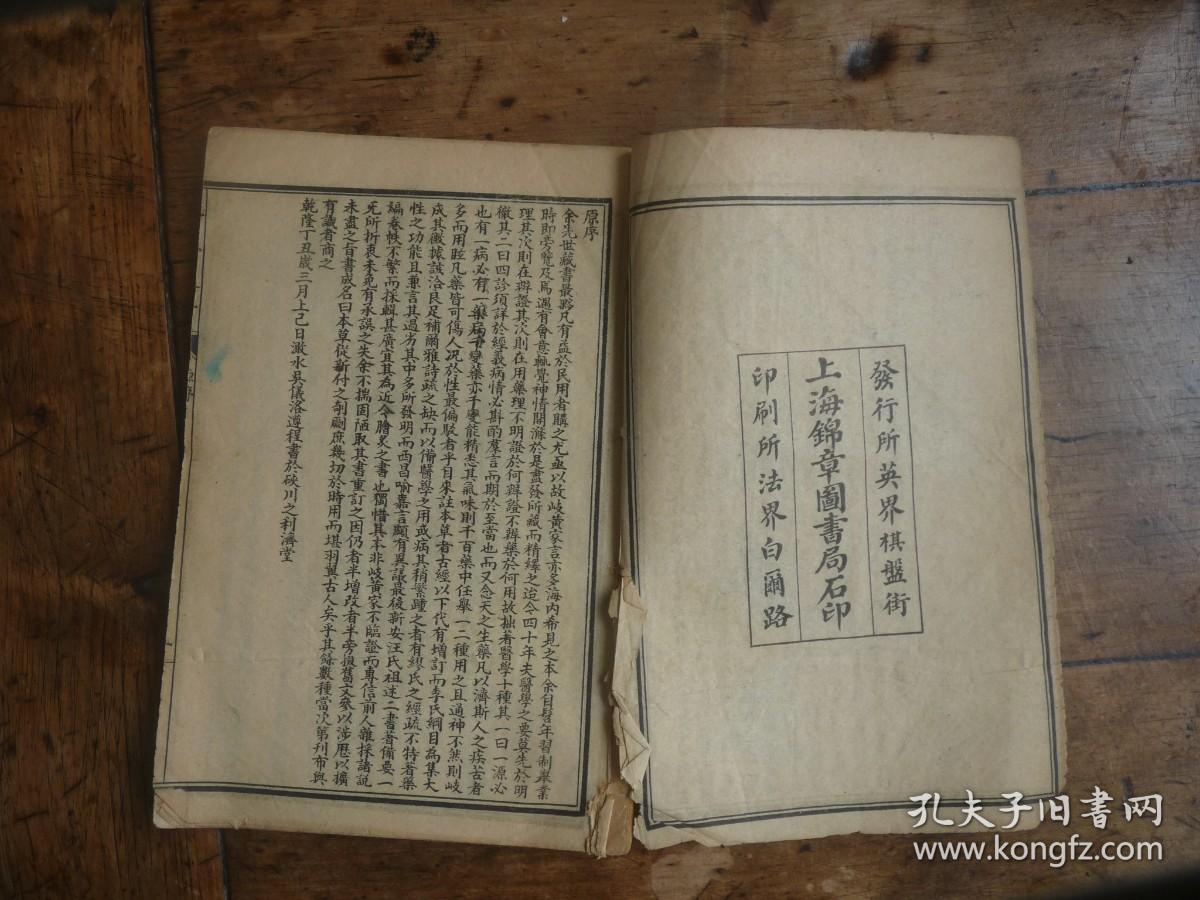 發行所英界棋盤街
上海錦章圖書局石印
印刷所法界白爾路
原序
余先世藏書最夥凡有益於民用者購之尤亟以故岐黃家言亦多海內希見之本余自髫年習制舉業
時即旁覽及焉遇有會意輒覺神情開滌於是盡發所藏而精繹之迨今四十年夫醫學之要莫先於明
理其次則在辨證其次則在用藥理不明證於何辨證不辨藥於何用故拙著醫學十種其一曰一源必
徹其二曰四診須詳於經義病情必斟酌羣言而期於至當也而又念天之生藥凡以濟斯人之疾苦者
也有一病必有一藥病千變藥亦千變能精悉其氣味則千百藥中任舉一二種用之且通神不然則岐
多而用眩凡藥皆可傷人况於性最偏駁者乎自來註本草者古經以下代有增訂而李氏綱目為集大
成其徵據該洽良足補爾雅詩疏之缺而以備醫學之用或病其稍繁踵之者有繆氏之經疏不特著藥
性之功能且兼言其過劣其中多所發明而西昌喻嘉言頗有異議最後新安汪氏祖述二書著備要一
編卷帙不繁而採輯甚廣宜其為近今膾炙之書也獨惜其本非岐黃家不臨證而專信前人雜採諸說
无所折衷未免有承誤之失余不揣固陋取其書重訂之因仍者半增改者半旁掇舊文參以涉歷以擴
未盡之旨書成名曰本草從新付之剞劂庶幾切於時用而堪羽翼古人矣乎其餘數種當次第刊布與
有識者商之
乾隆丁丑歲三月上巳日澉水吳儀洛遵程書於硤川之利濟堂
孔夫子旧書网
www.kongfz.com